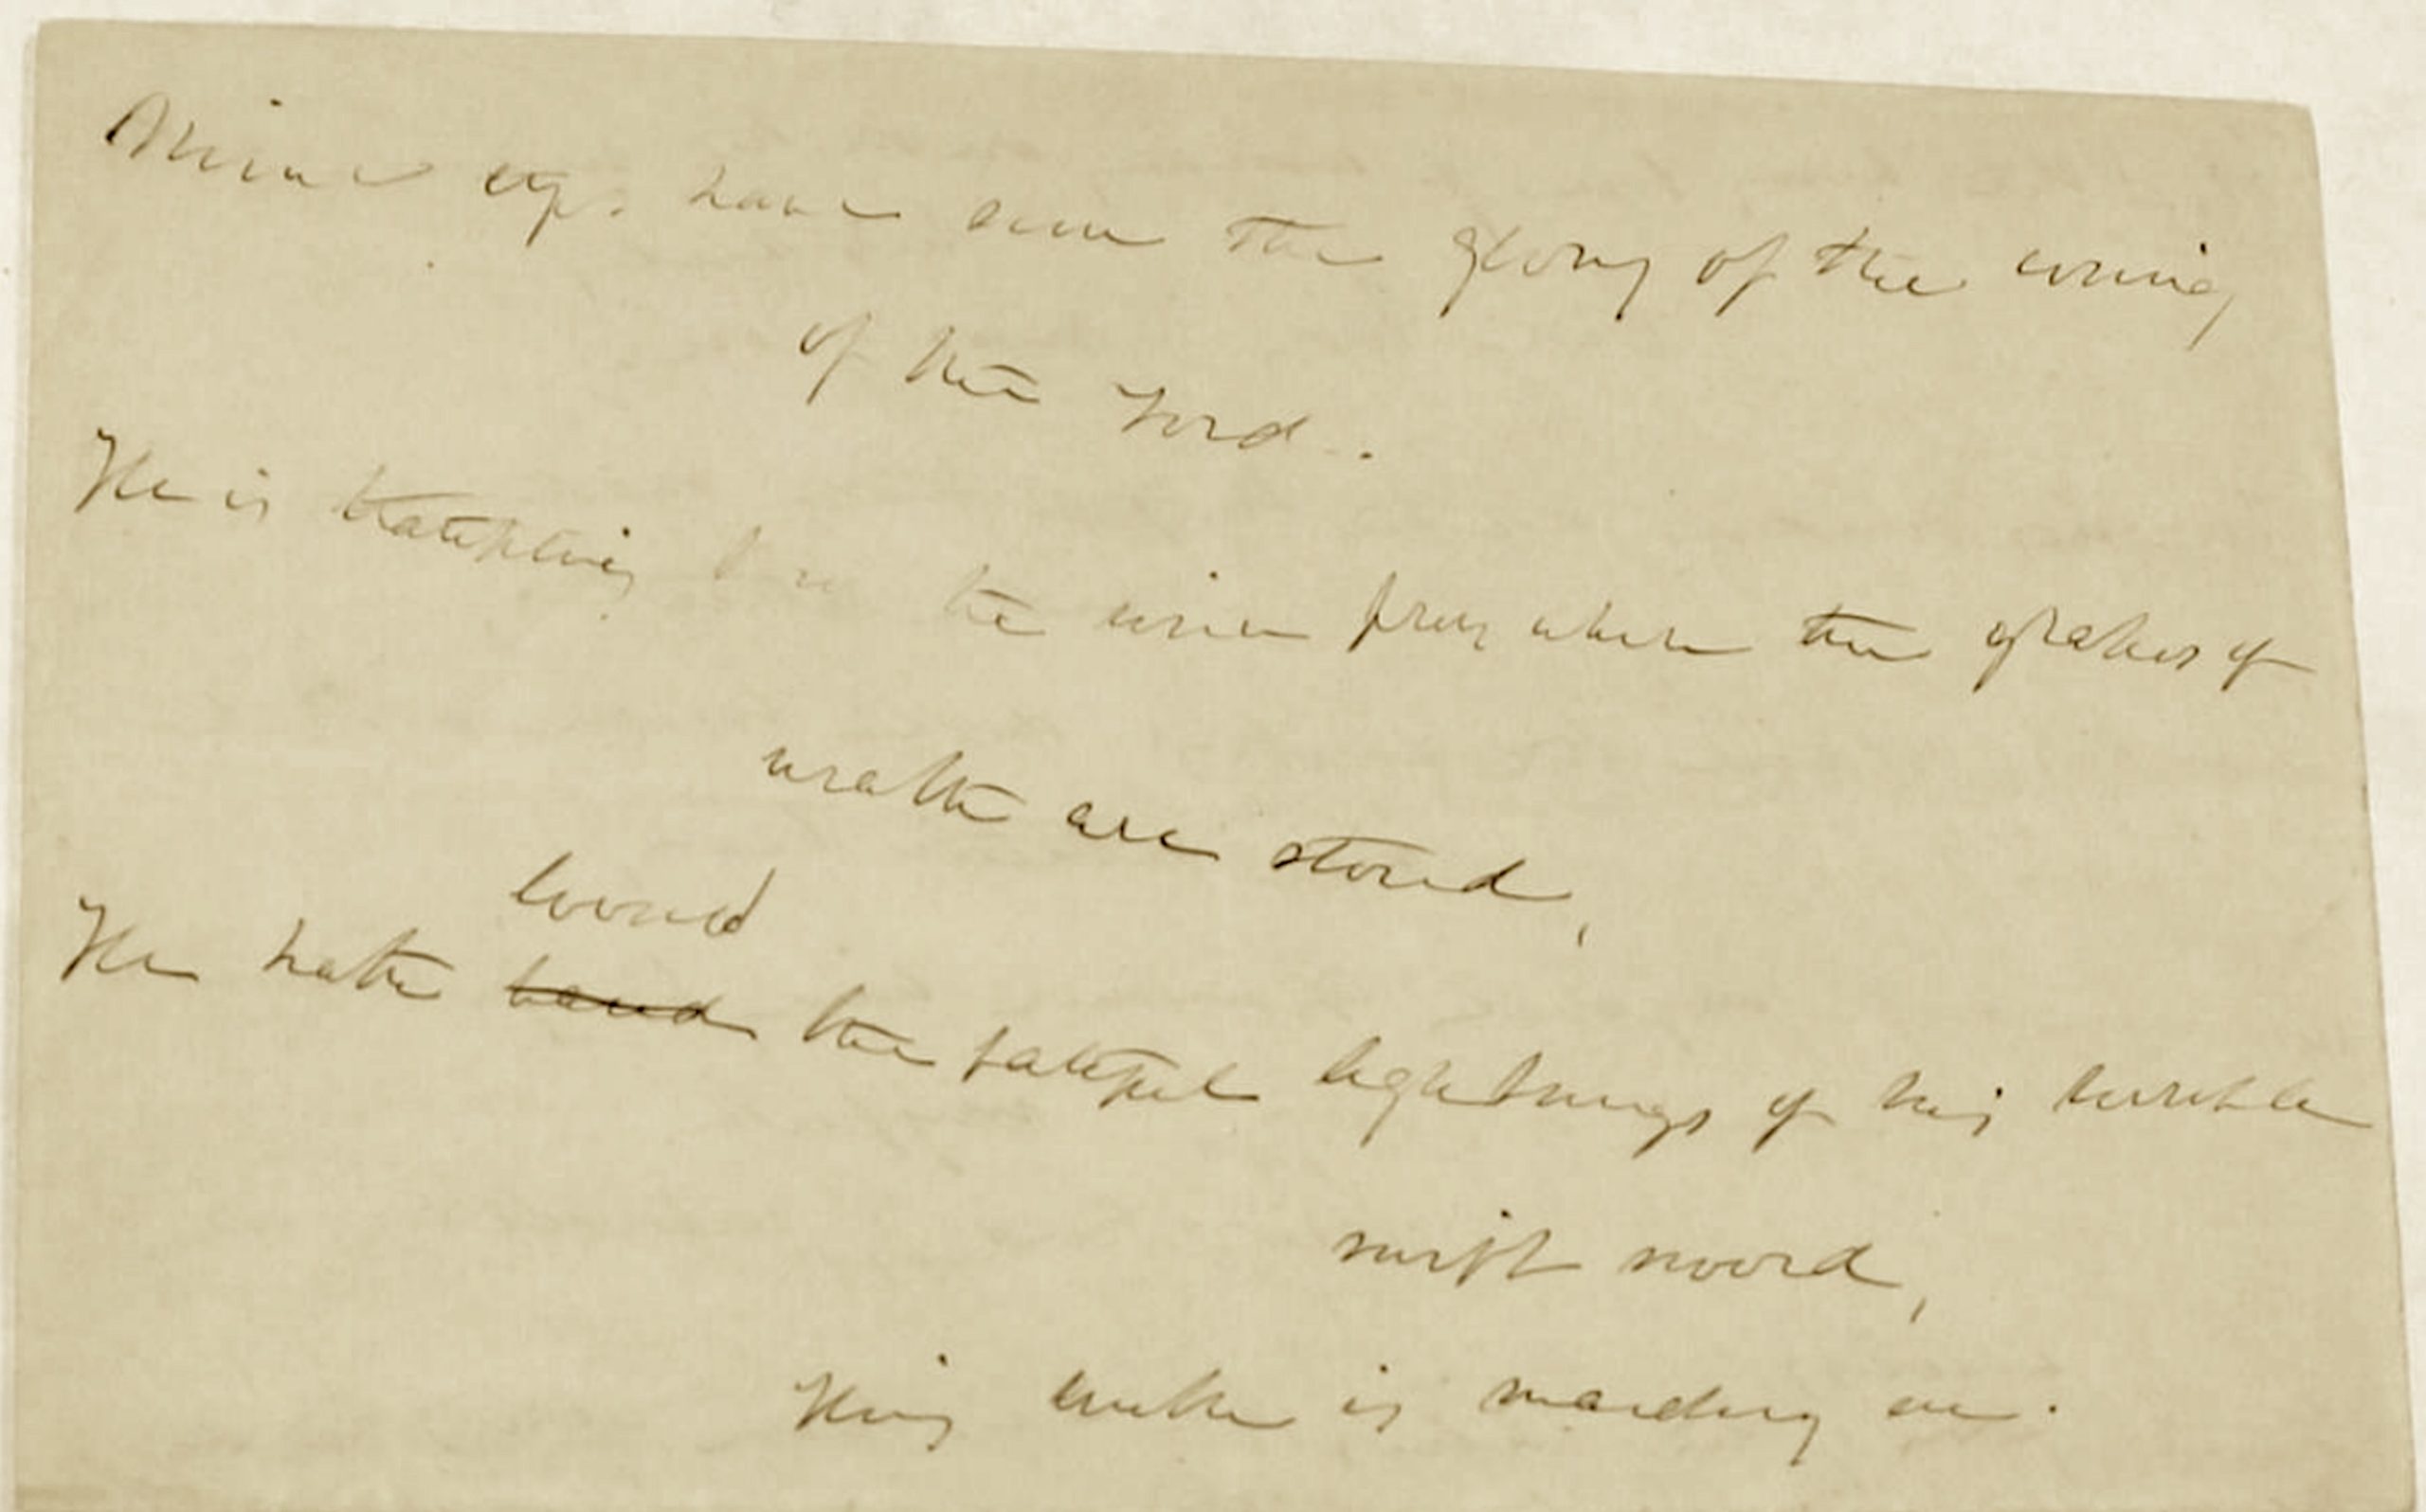 Mine eyes have seen the glory of the coming
of the Lord.
He is trampling the wine press where the grapes of
wrath are stored,
loosed
He hath the fateful lightnings of his terrible
swift sword,
His truth is marching on.